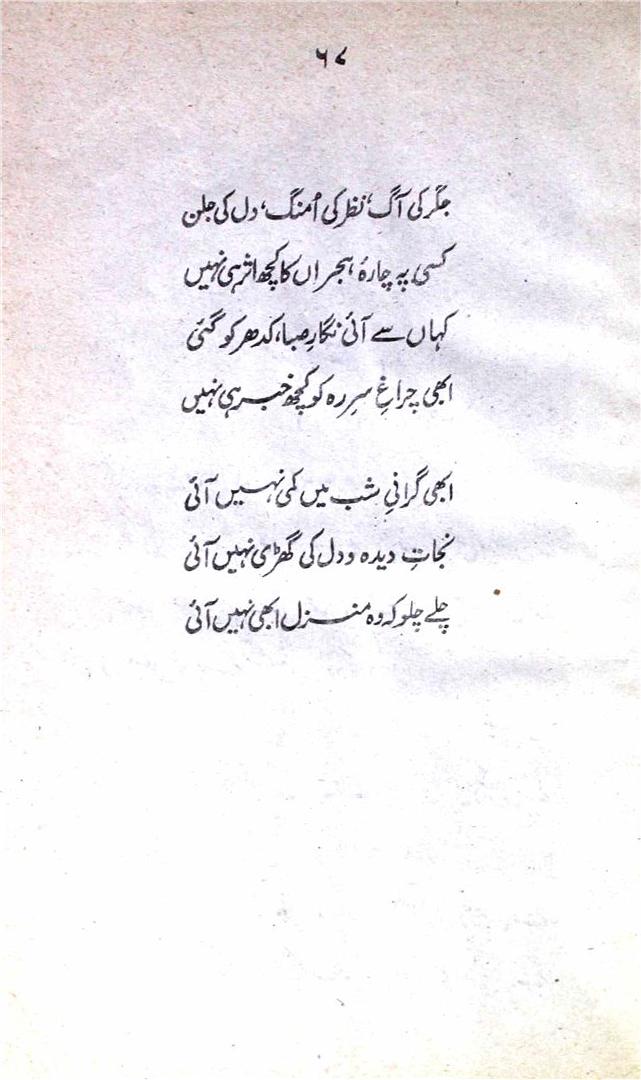 ۶۷
جگر کی آگ، نظر کی اُمنگ، دل کی جلن
کسی پہ چارۂ ہجراں کا کچھ اثر ہی نہیں
کہاں سے آئی نگارِ صبا، کدھر کو گئی
ابھی چراغِ سرِ رہ کو کچھ خبر ہی نہیں
ابھی گرانیِ شب میں کمی نہیں آئی
نجاتِ دیدہ و دل کی گھڑی نہیں آئی
چلے چلو کہ وہ منزل ابھی نہیں آئی